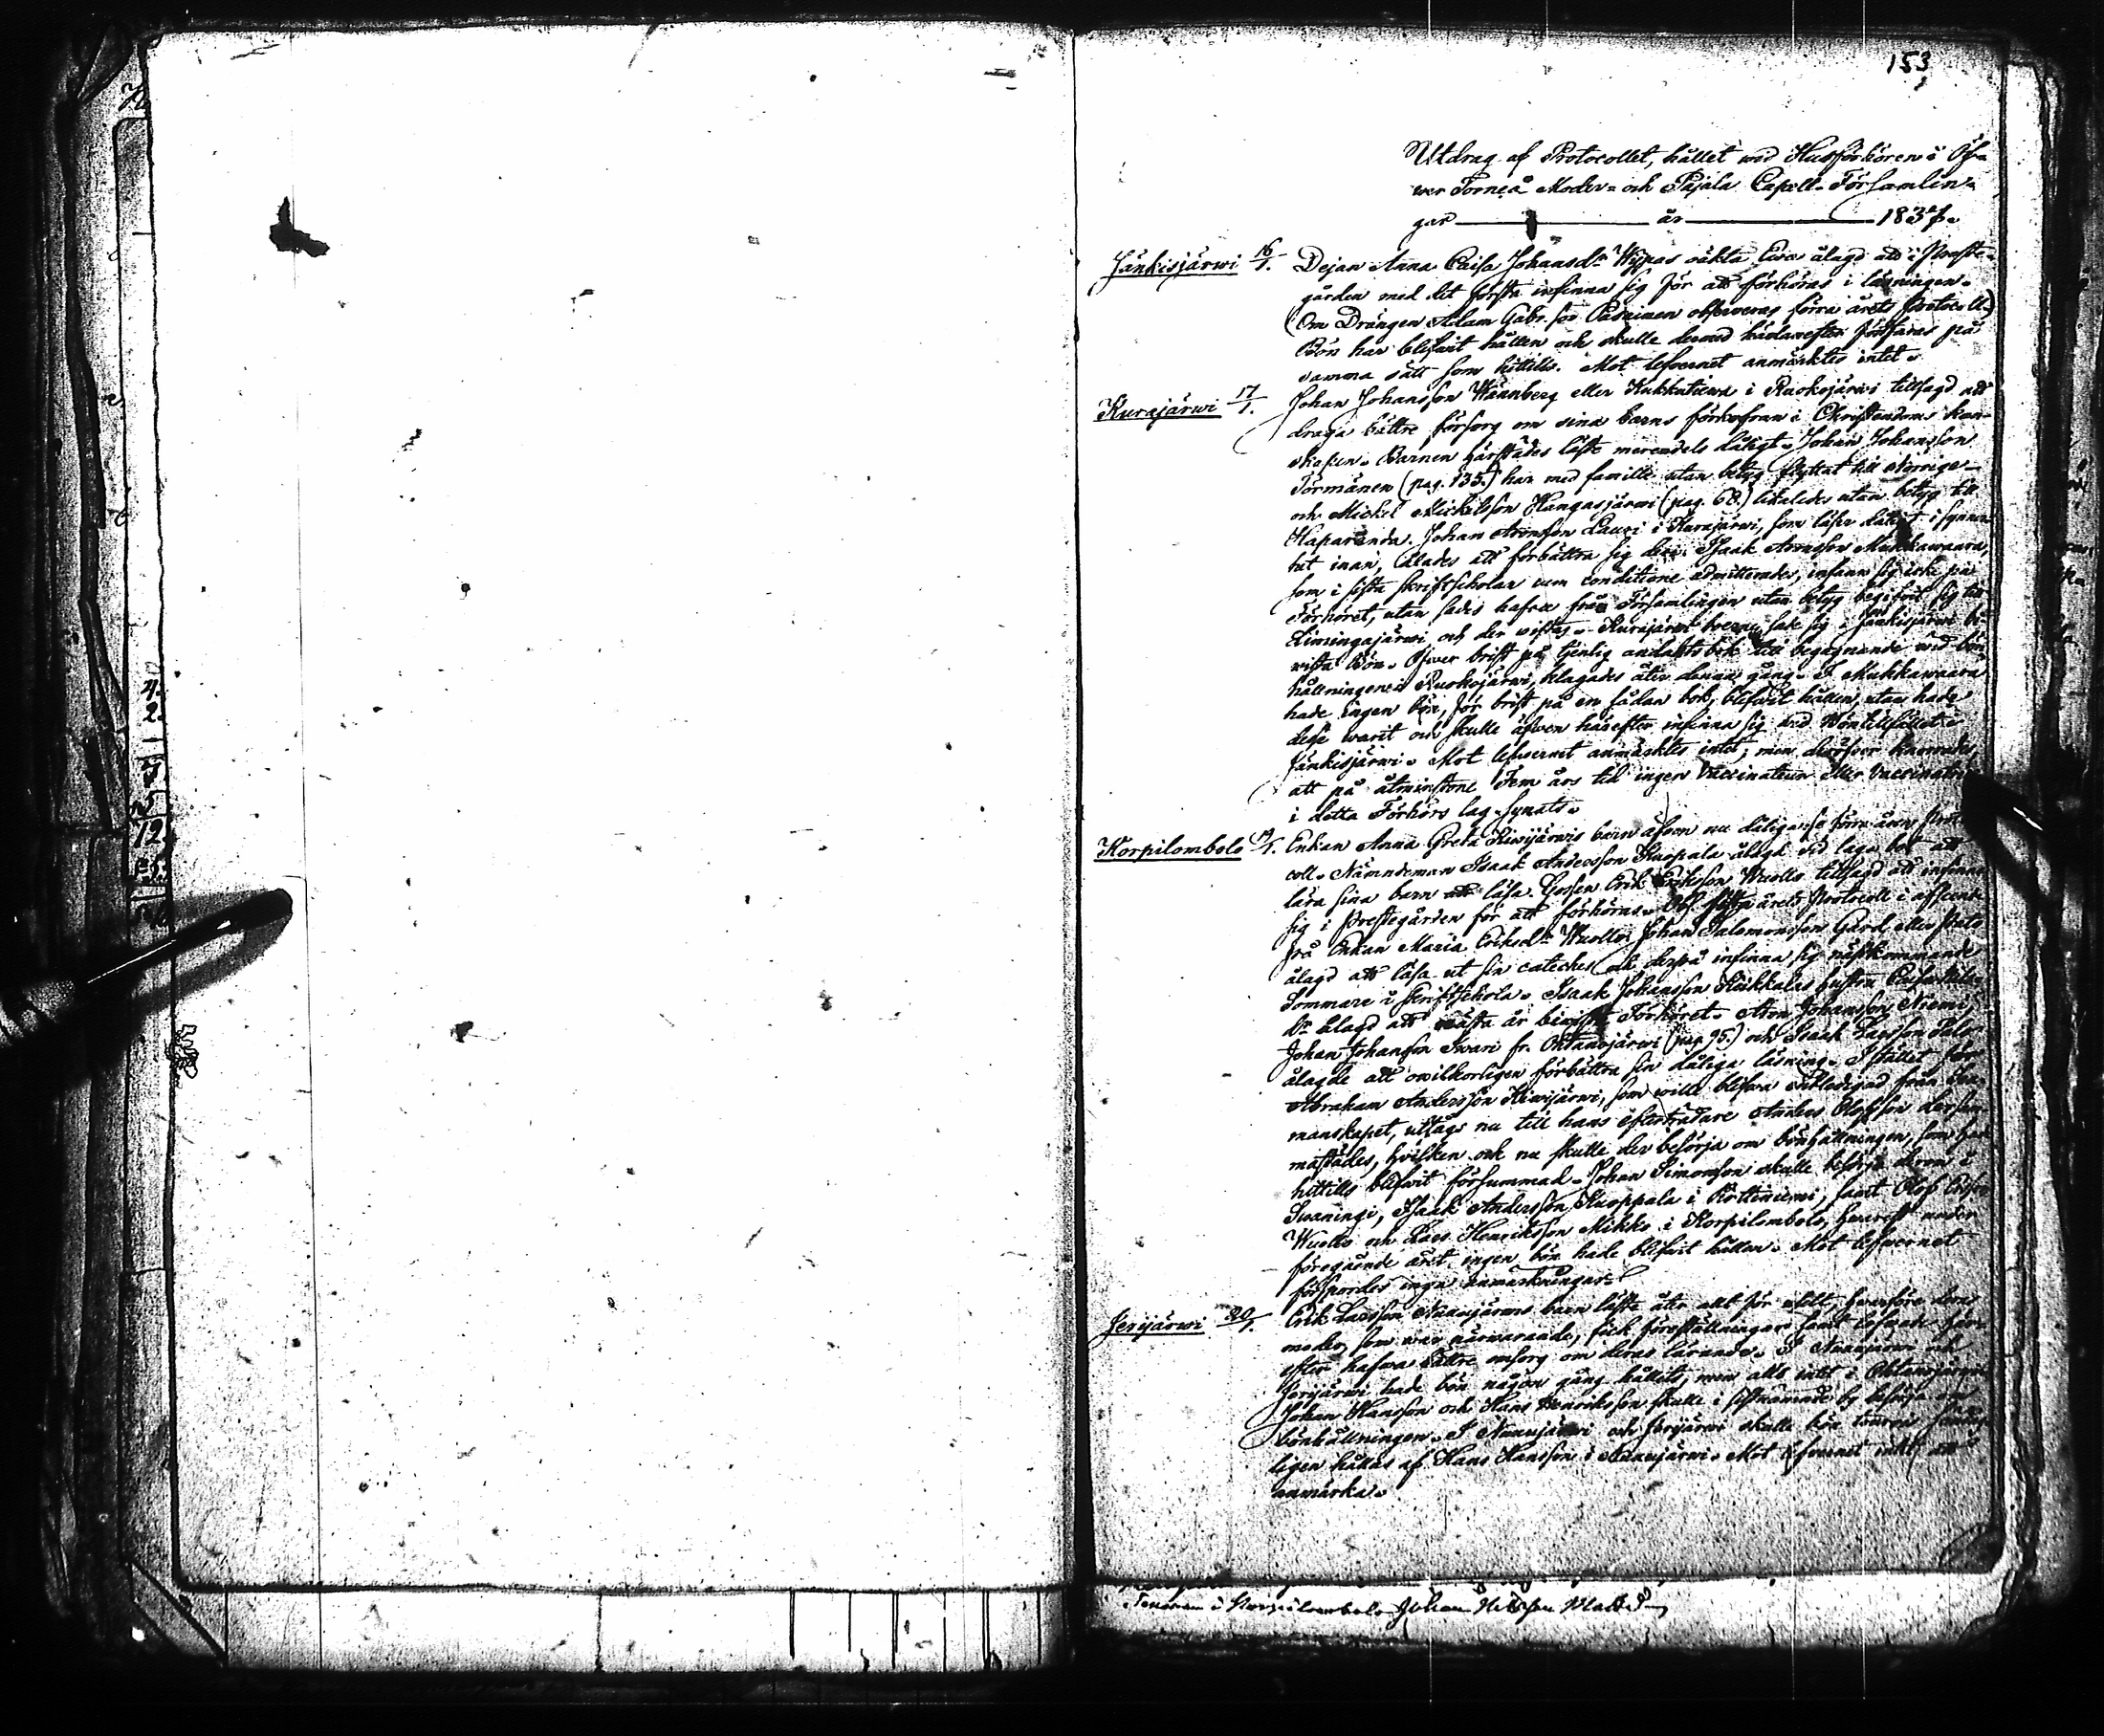 153
Utdrag af Protocollet, hållet wid Husförhören i Öf-
wer Torneå Moder- och Pajala Capell-Församlin-
gar år 183
Jänkisjärwi 16/1. Dejan Anna Caisa Johansdr Wippas oäkta Ewa ålagd att i Preste-
gården med det första infinna sig för att förhöras i läsningen.
(Om Drängen Adam Gabr.son observeras förra årets Protocoll.)
Bön har blifwit hållen och skulle dermed hädanefter fortfaras på
samma sätt som hittills. Mot lefwernet anmärktes intet.
Kurajärwi 17/1. Johan Johansson Wännberg eller i Ruokojärwi tillsagd att
draga bättre försorg om sina barns förkofran i Christendoms kun-
skapen. Barnen härstädes läste merendels dåligt. Johan Johansson
Törmänen (pag. 135.) har med famille utan betyg flyttat till Norrige
och Mickel Mickelsson Kangasjärwi (pag. 68.) likaledes utan betyg till
Haparanda. Johan Aronsson Lauri i Kurajärwi, som läser dåligt i synner-
het inan, ålades att förbättra sig deri. Isaak Aronsson Mukkawaara,
som i sista skriftscholan cum conditione admitterades, infann sig icke på
Förhöret, utan sades hafwa från Församlingen utan betyg begifwit sig till
Liminganjärwi och der wistas. Kurajärwi boerne sade sig i Jänkisjärwi bi-
wista Bön. Öfwer brist på tjenlig andaktsbok till begagnande wid bön-
hållningen i Ruokojärwi, klagades åter denna gång. I Mukkawaara
hade ingen bön, för brist på en sådan bok, blifwit hållen, utan hade
desse warit och skulle äfwen härefter infinna sig wid Böntillfället i
Jänkisjärwi. Mot lefwernet anmärktes intet; men deröfwer
att på åtminstone Fem års tid ingen Vaccinateur eller
i detta Förhörs lag synats.
Korpilombolo 19/1. Enkan Anna Greta Kiwijärwis barn äfwen nu dåliga, se förra årens Proto-
coll. Nämndeman Isaak Andersson Kuoppala ålagd wid laga bot att
lära sina barn att läsa. Gossen Erik Eriksson Wuollo tillsagd att infinna
sig i Prestegården för att förhöras. Obs. sista årets Protocoll i afseende
på Enkan Maria Eriksdr Wuollo. Johan Salomonsson Gård eller
ålagd att läsa ut sin cateches och derpå infinna sig nästkommande
Sommare i skriftschola. Isaak Johansson hustru Caisa Nils-
dr ålagd att nästa år biwista Förhöret. Aron Johansson Niemi,
Johan Johansson Iwari fr. Ohtanajärwi (pag. 95.) och Isaak Larsson Salo
ålagde att owilkorligen förbättra sin dåliga läsning. I stället för
Abraham Andersson Kiwijärwi, som wille blifwa entledigad från
manskapet, uttogs nu till hans efterträdare Anders Olofsson dersam-
mastädes, hwilken ock nu skulle der besörja om bönhållningen, som har
hittills blifwit försummad. Johan Simonsson skulle besörja derom i
Suaningi, Isaak Andersson Kuoppala i Rottiniemi, samt Olof
Wuollo och Lars Henriksson Mikko i Korpilombolo, hwarest under
föregående året ingen bön hade blifwit hållen. Mot lefwernet
förspordes inga anmärkningar.
Jerijärwi 20/1. Erik Larsson Nuuujärwis barn läste åter allt för slätt, hwarföre deras
moder, som war närwarande, fick föreställningar samt lofwade här-
efter hafwa bättre omsorg om deras lärande. I Nuuujärwi och
Jerijärwi hade bön någon gång hållits, men allt intet i Ohtanajärwi
Johan Hansson och Hans Henriksson skulle i sistnämnde by besörja om
bönhållningen. I Nuuujärwi och Jerijärwi skulle bön
ligen hållas af Hans Hansson i Nuuujärwi. Mot lefwernet intet att
anmärka.
i Korpilombolo Johan Nilsson